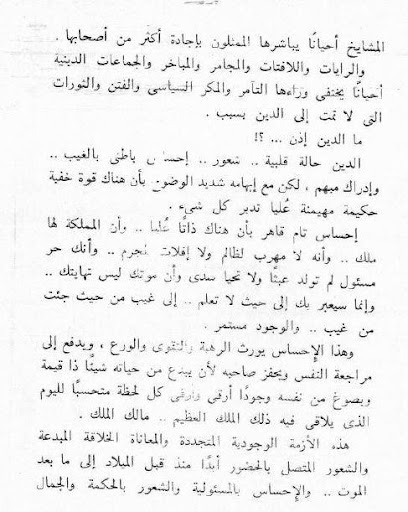 المشايخ أحيانًا يباشرها الممثلون بإجادة أكثر من أصحابها .
والرايات واللافتات والمجامر والمباخر والجماعات الدينية
أحيانًا يختفى وراءها التآمر والمكر السياسى والفتن والثورات
التى لا تمت إلى الدين بسبب .
ما الدين إذن ... ؟!
الدين حالة قلبية .. شعور .. إحساس باطنى بالغيب ..
وإدراك مبهم ، لكن مع إبهامه شديد الوضوح بأن هناك قوة خفية
حكيمة مهيمنة عُليا تدبر كل شىء .
إحساس تام قاهر بأن هناك ذاتًا عُليا .. وأن المملكة لها
ملك .. وأنه لا مهرب لظالم ولا إفلات لمجرم .. وأنك حر
مسئول لم تولد عبثًا ولا تحيا سدى وأن موتك ليس نهايتك ..
وإنما سيعبر بك إلى حيث لا تعلم .. إلى غيب من حيث جئت
من غيب .. والوجود مستمر .
وهذا الإحساس يورث الرهبة والتقوى والورع ، ويدفع إلى
مراجعة النفس ويحفز صاحبه لأن يبدع من حياته شيئًا ذا قيمة
ويصوغ من نفسه وجودًا أرقى وأرقى كل لحظة متحسبًا لليوم
الذى يلاقى فيه ذلك الملك العظيم .. مالك الملك .
هذه الأزمة الوجودية المتجددة والمعاناة الخلاقة المبدعة
والشعور المتصل بالحضور أبدًا منذ قبل الميلاد إلى ما بعد
الموت .. والإحساس بالمسئولية والشعور بالحكمة والجمال